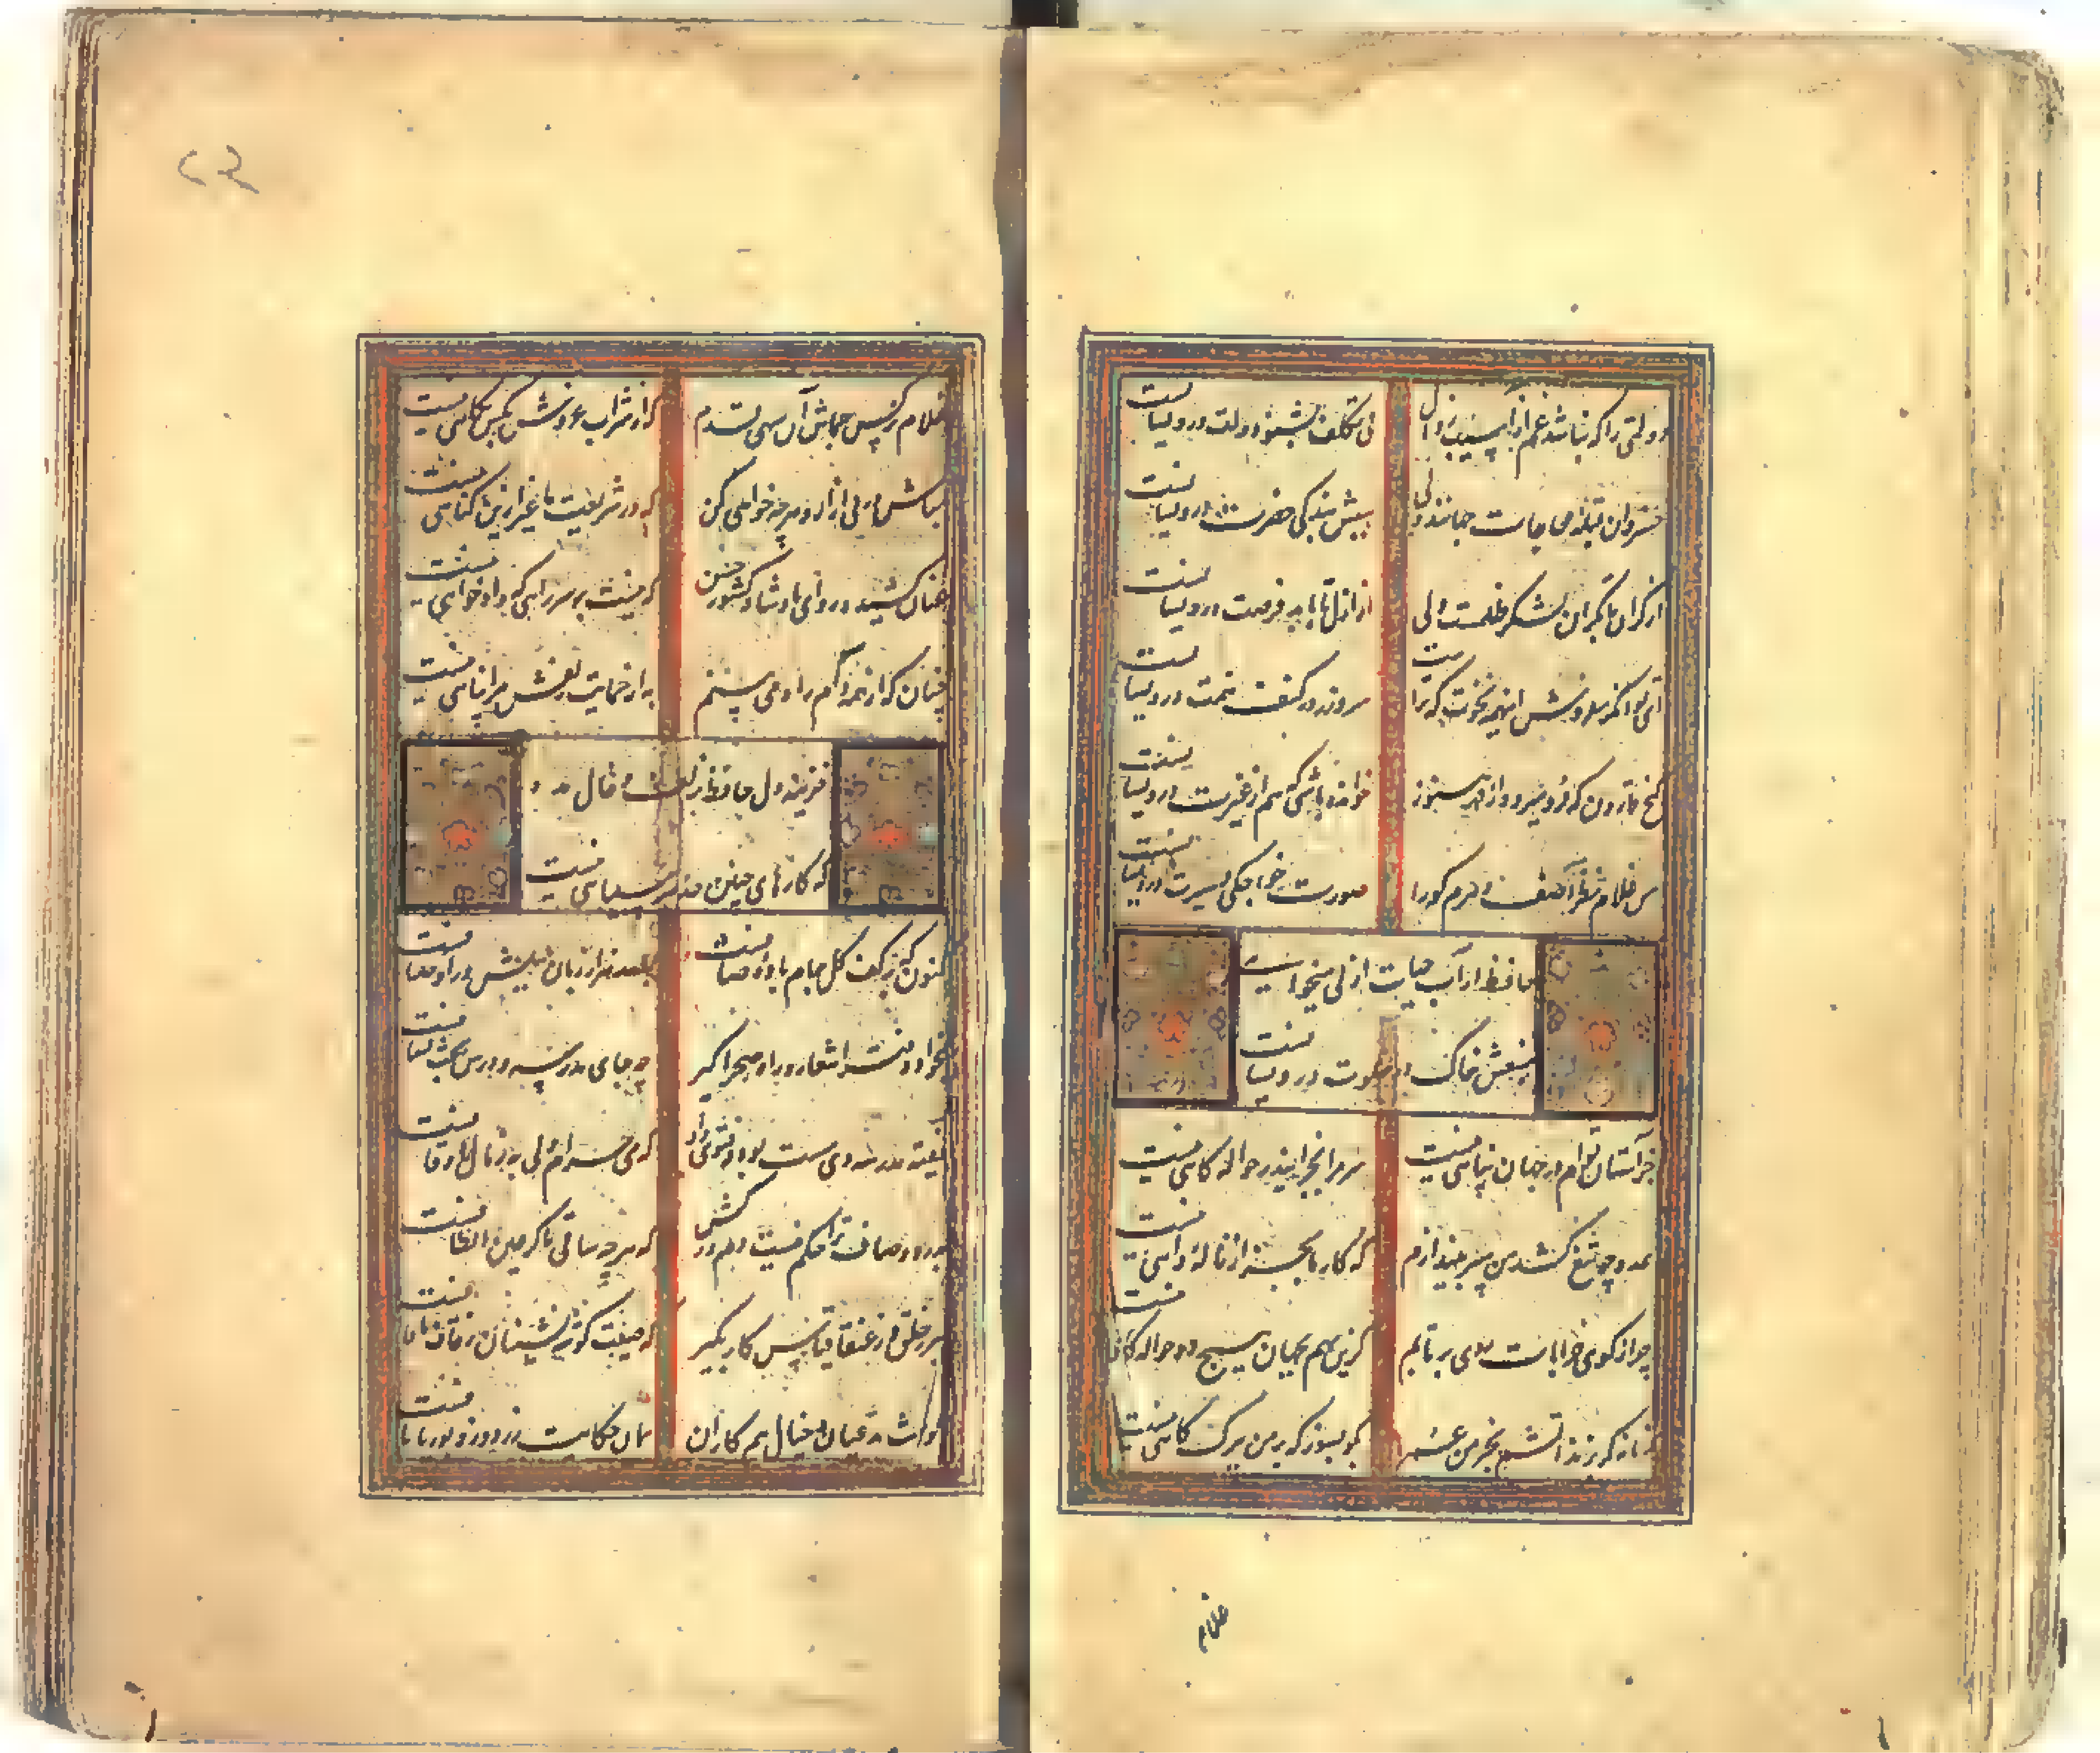 دولتی را که نباشد غم از آسیب زوال
بی تکلف بشنو دولت درویشانست
خسروان قبله حاجات جهانند ولی
سببش بندگی حضرت درویشانست
از کران تا بکران لشکر ظلمست ولی
از ازل تا بابد فرصت درویشانست
ای توانگر مفروش اینهمه نخوت که ترا
سر و زر در کنف همت درویشانست
گنج قارون که فرو میرود از قهر هنوز
خوانده باشی که هم از غیرت درویشانست
من غلام نظر آصف عهدم کورا
صورت خواجگی و سیرت درویشانست
حافظ ار آب حیات ازلی میخواهی
منبعش خاک در خلوت درویشانست
جز آستان توام در جهان پناهی نیست
سر مرا بجز این در حواله گاهی نیست
عدو چو تیغ کشد من سپر بیندازم
که کار ما بجز از ناله و آهی نیست
چرا ز کوی خرابات روی برتابم
کزین بهم بجهان هیچ
زمانه گر بزند آتشم بخرمن عمر
بگو بسوز که بر من ببرگ کاهی نیست
غلام
غلام نرگس جماش آن سهی قدم
که از شراب غرورش بکس نگاهی نیست
مباش در پی آزار و هر چه خواهی کن
که در شریعت ما غیر ازین گناهی نیست
عنان کشیده رو ای پادشاه کشور حسن
که نیست بر سر راهی که دادخواهی نیست
چنان که از همه سو دام راه می بینم
به از حمایت زلفش مرا پناهی نیست
خزینه دل حافظ بزلف و خال مده
که کارهای چنین حد هر سیاهی نیست
کنون که بر کف گل جام باده صافست
بصد هزار زبان بلبلش در اوصافست
بخواه دفتر اشعار و راه صحرا گیر
چه جای مدرسه و درس بحث کشافست
فقیه مدرسه دی مست بود و فتوی داد
که می حرام ولی به ز مال اوقافست
بدرد و صاف ترا حکم نیست دم درکش
که هر چه ساقی ما کرد عین الطافست
ببر ز خلق و ز عنقا قیاس کار بگیر
که صیت گوشه نشینان ز قاف تا قافست
حدیث مدعیان و خیال همکاران
همان حکایت زردوز و بوریابافست